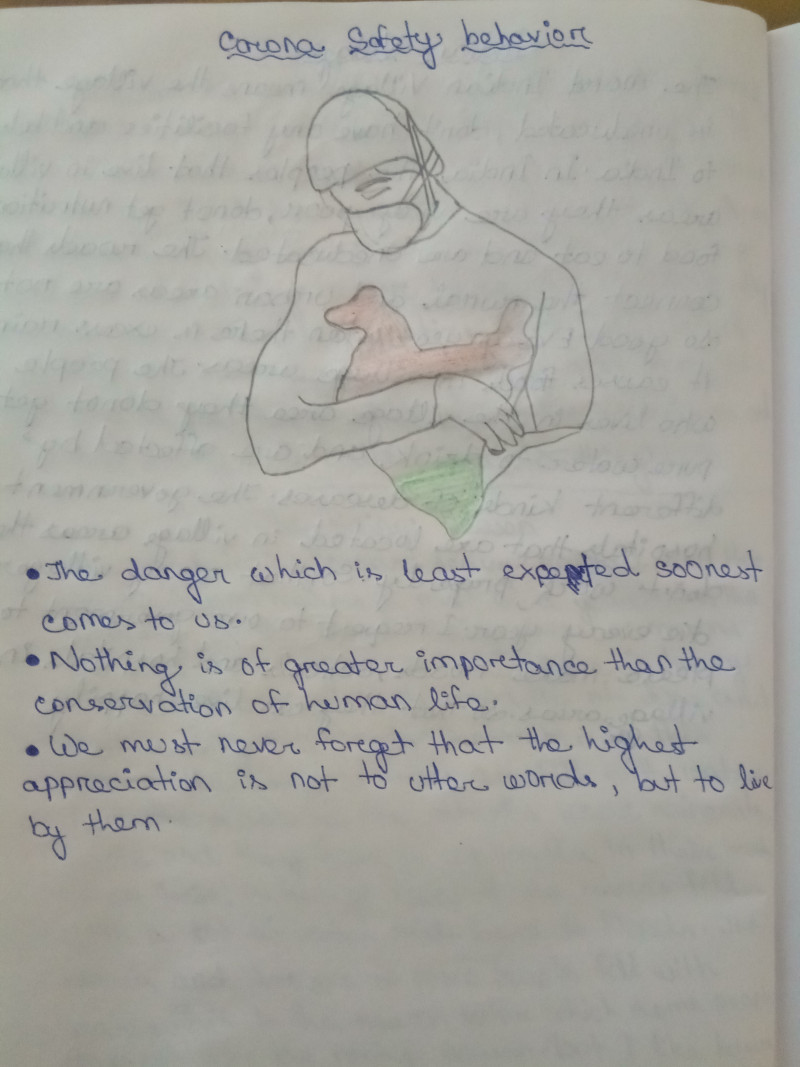 Corona Safety behavior
• The danger which is least expected soonest
comes to us.
• Nothing is of greater importance than the
conservation of human life.
• We must never forget that the highest
appreciation is not to utter words, but to live
by them.